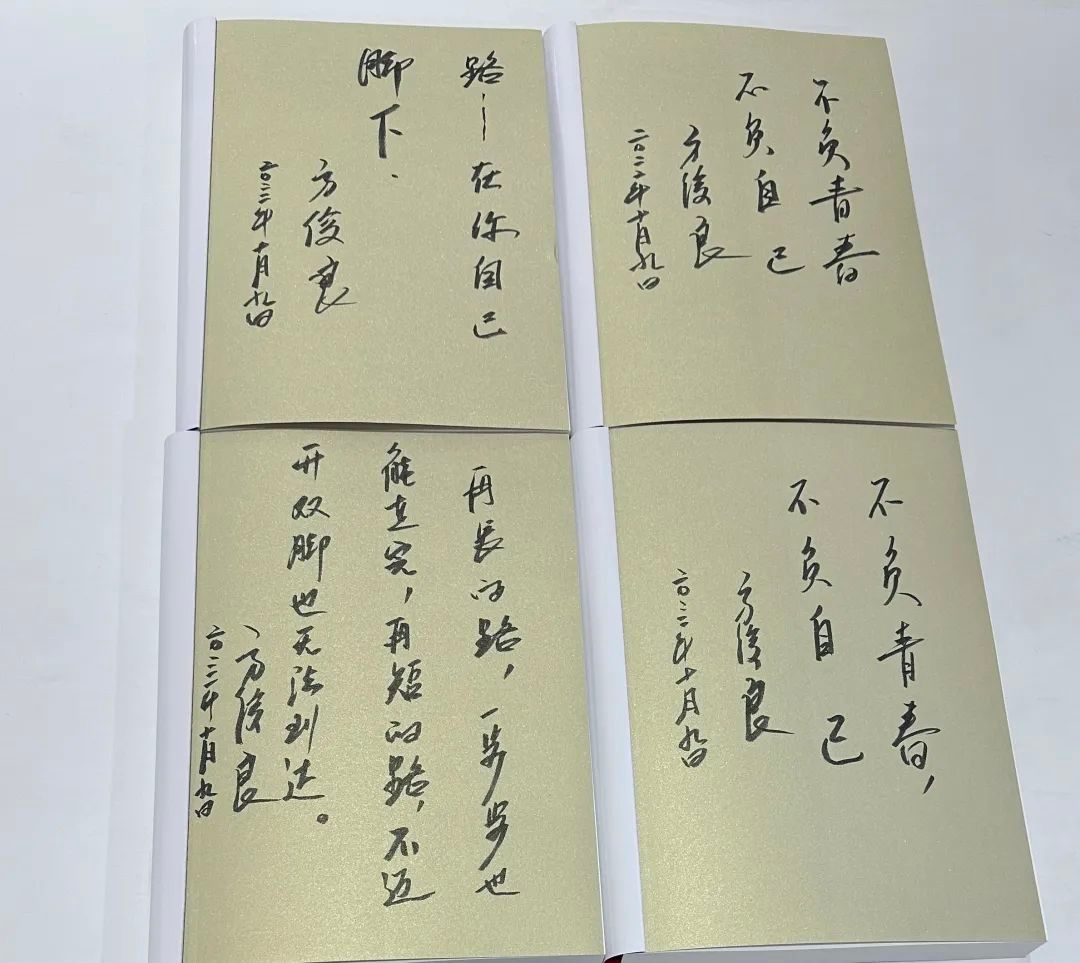 路—在你自己
脚下.
方俊良
二〇二二年十月九日
不负青春
不负自己
方俊良
二〇二二年十月九日
再长的路，一步步也
能走完，再短的路，不迈
开双脚也无法到达。
方俊良
二〇二二年十月九日
不负青春，
不负自己
方俊良
二〇二二年十月九日